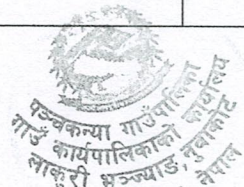 पञ्चकन्या गाउँपालिका
गाउँ कार्यपालिकाको कार्यालय
लाकुरी भञ्ज्याङ, नुवाकोट
नेपाल